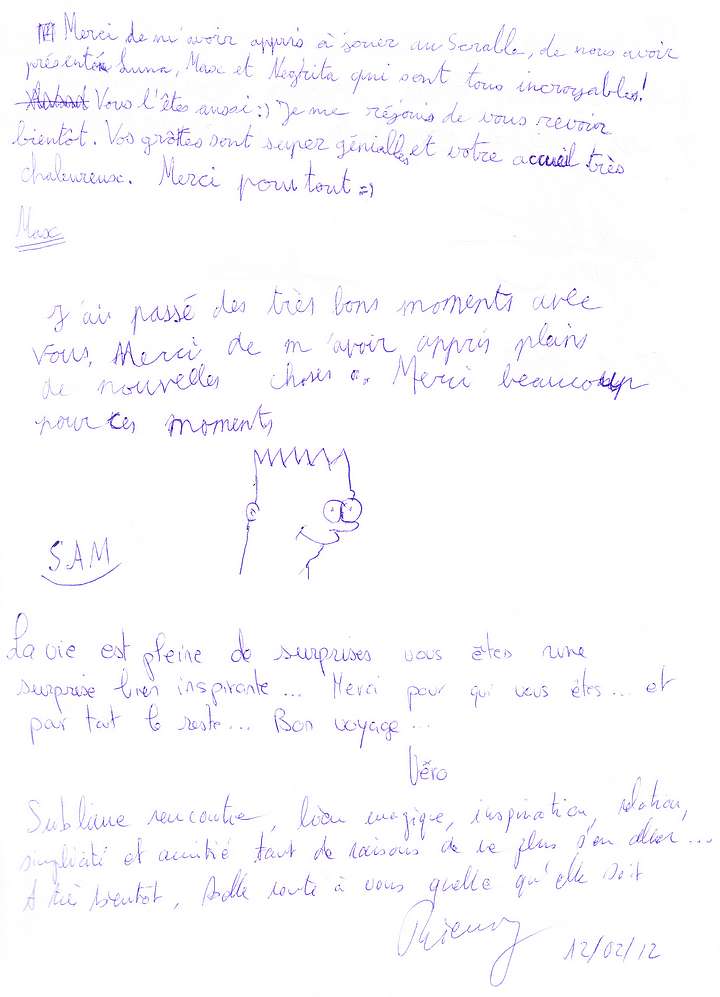 Merci de m'avoir appris à jouer au Scrable, de nous avoir
présenté Luna, Max et Negrita qui sont tous incroyables!
Vous l'êtes aussi :) Je me réjouis de vous revoir
bientôt. Vos grottes sont super géniales et votre accueil très
chaleureux. Merci pour tout =)
Max
J'ai passé des très bons moments avec
vous. Merci de m'avoir appris plains
de nouvelles choses. Merci beaucoup
pour ces moments
SAM
La vie est pleine de surprises vous êtes une
surprise bien inspirante... Merci pour qui vous êtes... et
par tout le reste... Bon voyage...
Véro
Sublime rencontre, lieu magique, inspiration, relation,
simplicité et amitié tant de raisons de ne plus s'en aller...
A très bientôt, belle route à vous quelle qu'elle soit
Thierry
12/02/12